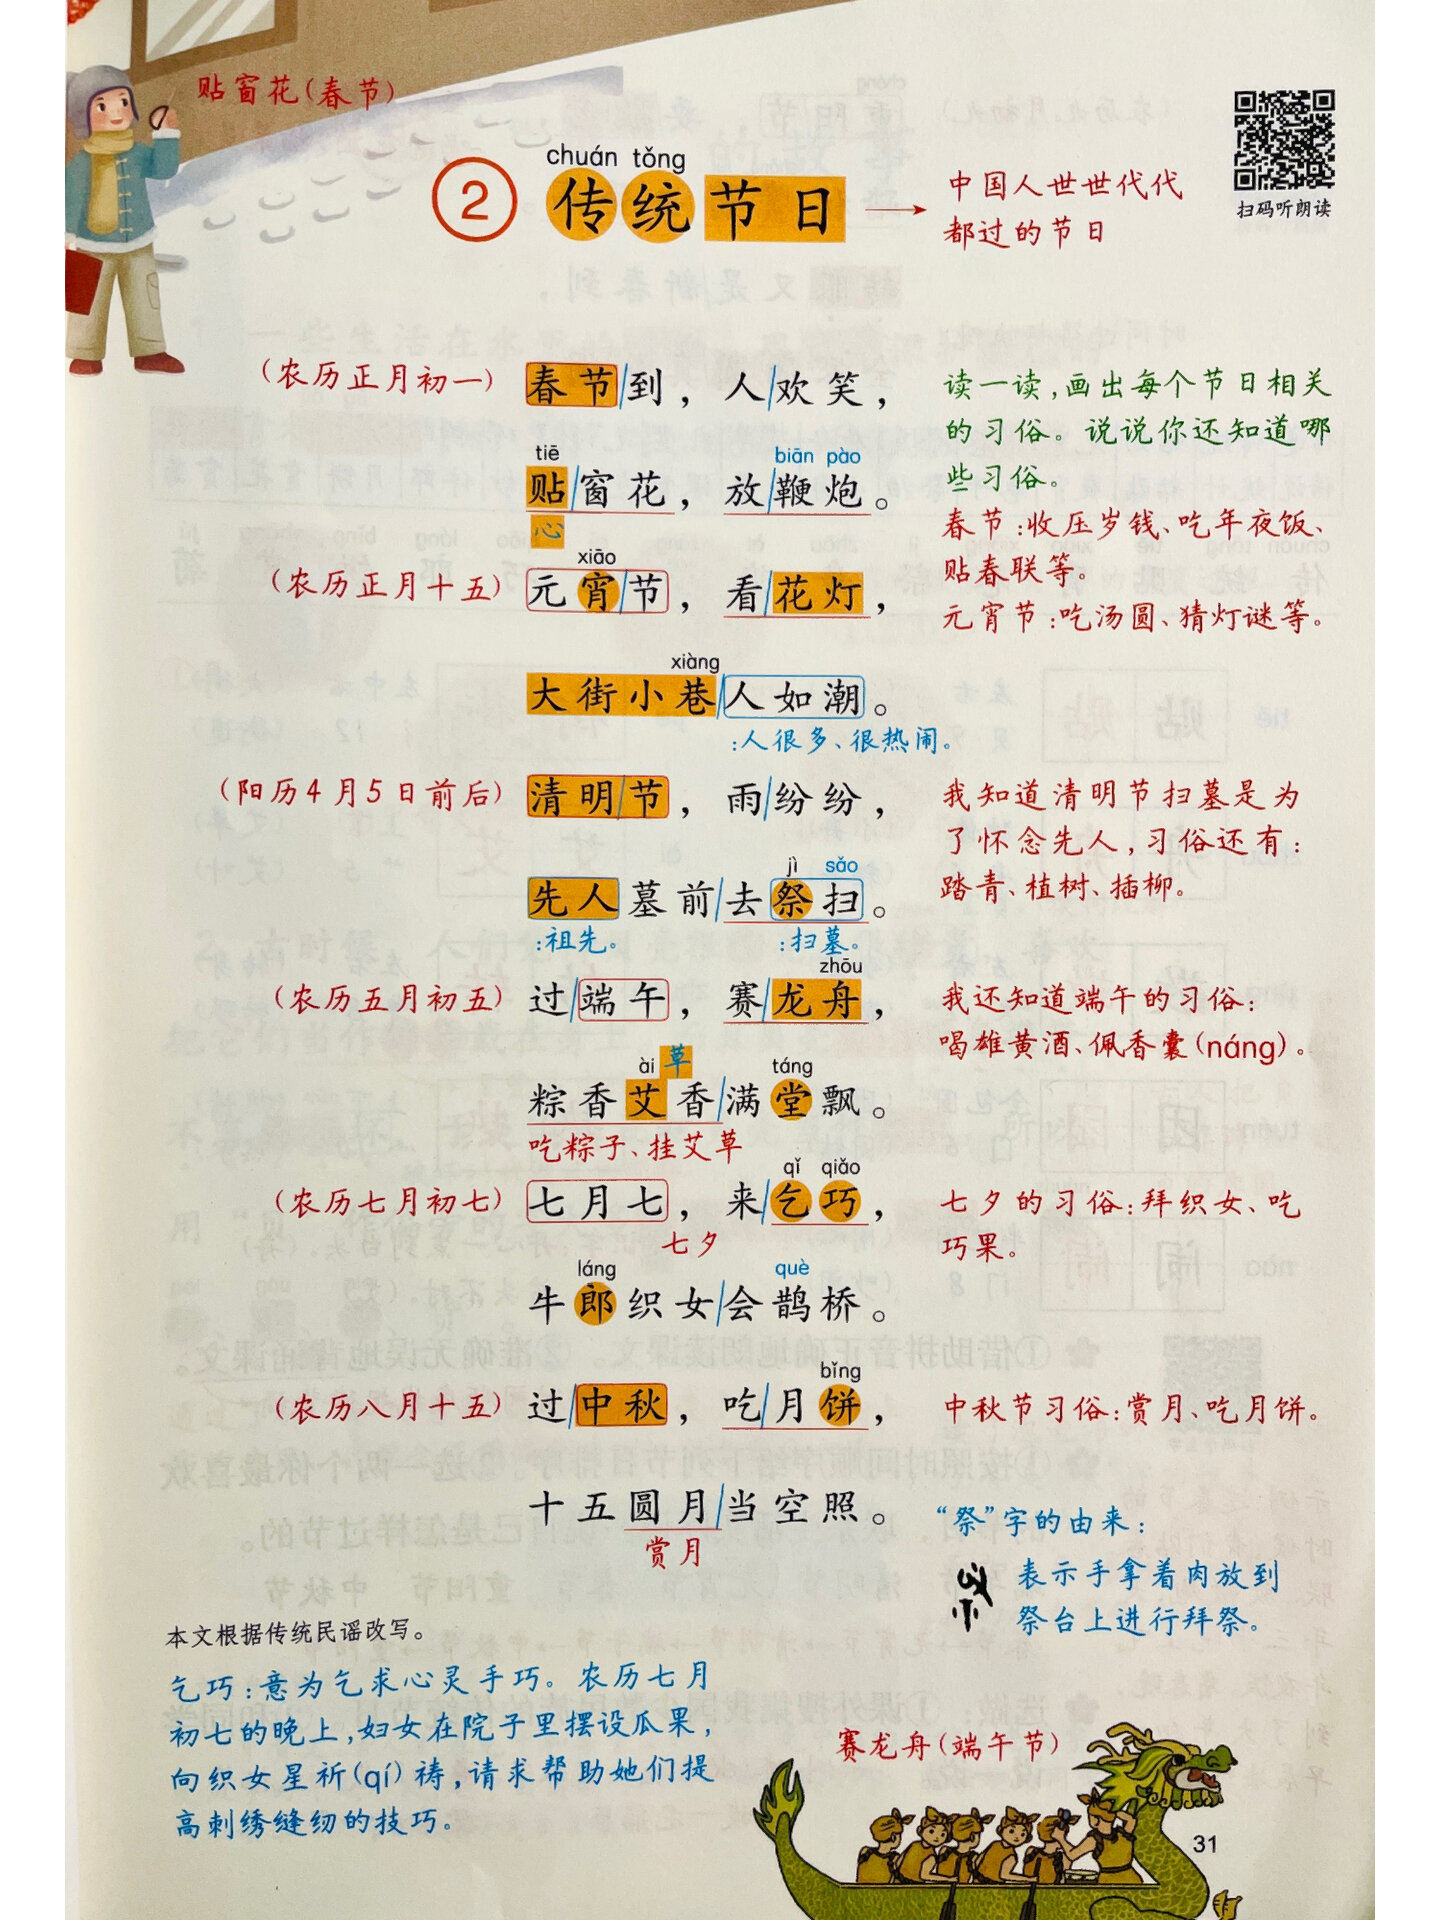 贴窗花(春节)
扫码听朗读
chuán tǒng
② 传统节日
中国人世世代代
都过的节日
(农历正月初一) 春节到，人欢笑，
读一读,画出每个节日相关
的习俗。说说你还知道哪
些习俗。
tiē biān pào
贴窗花，放鞭炮。
心
春节:收压岁钱、吃年夜饭、
贴春联等。
xiāo
(农历正月十五) 元宵节，看花灯，
元宵节:吃汤圆、猜灯谜等。
xiàng
大街小巷人如潮。
:人很多、很热闹。
(阳历4月5日前后) 清明节，雨纷纷，
我知道清明节扫墓是为
了怀念先人,习俗还有:
踏青、植树、插柳。
jì sǎo
先人墓前去祭扫。
:祖先。 :扫墓。
zhōu
(农历五月初五) 过端午，赛龙舟，
我还知道端午的习俗:
喝雄黄酒、佩香囊(náng)。
ài 草 táng
粽香艾香满堂飘。
吃粽子、挂艾草
qǐ qiǎo
(农历七月初七) 七月七，来乞巧，
七夕
七夕的习俗:拜织女、吃
巧果。
láng què
牛郎织女会鹊桥。
bǐng
(农历八月十五) 过中秋，吃月饼，
中秋节习俗:赏月、吃月饼。
十五圆月当空照。
赏月
“祭”字的由来:
表示手拿着肉放到
祭台上进行拜祭。
本文根据传统民谣改写。
乞巧:意为乞求心灵手巧。农历七月
初七的晚上,妇女在院子里摆设瓜果,
向织女星祈(qí)祷,请求帮助她们提
高刺绣缝纫的技巧。
赛龙舟(端午节)
31